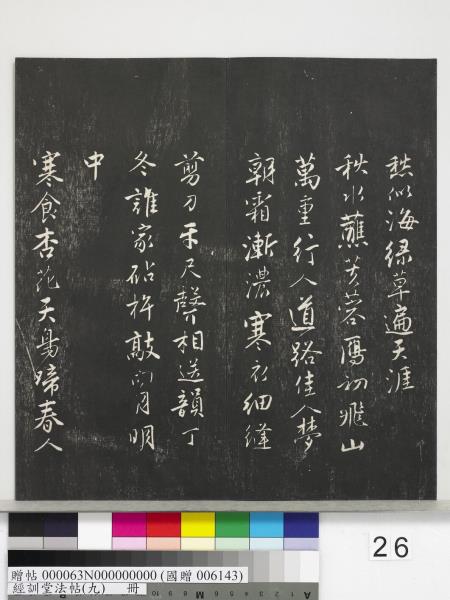 愁似海綠草遍天涯
秋水蘸芙蓉鴈初飛山
萬重行人道路佳人夢
朝霜漸濃寒衣細縫
剪刀牙尺聲相送韻丁
冬誰家砧杵敲向月明
中
寒食杏花天鳥啼春人
26
贈帖 000063N000000000 (國贈 006143)
經訓堂法帖(九) 冊